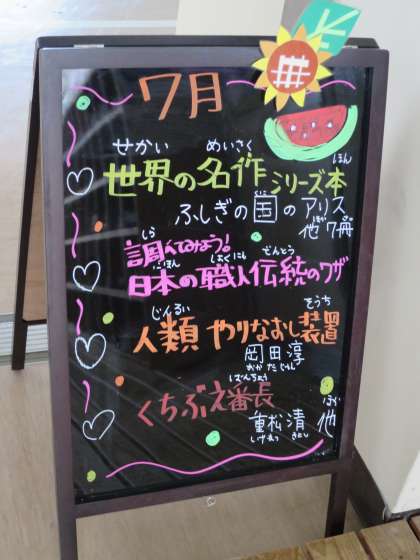 7月
せかい めいさく ほん
世界の名作シリーズ本
くに
ふしぎの国のアリス
ほか さつ
他 7冊
しら
調べてみよう!
にほん しょくにん でんとう
日本の職人伝統のワザ
じんるい そうち
人類 やりなおし装置
岡田淳
おかだ じゅん
ばんちょう
くちぶえ番長
ほか
重松清 他
しげまつ きよし